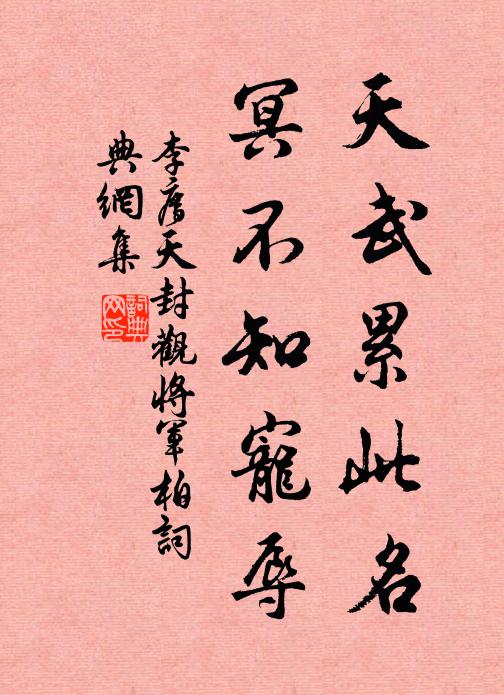 天武累此名
冥不知寵辱
李廌天封觀將軍柏詞
典網集
詞典
网印